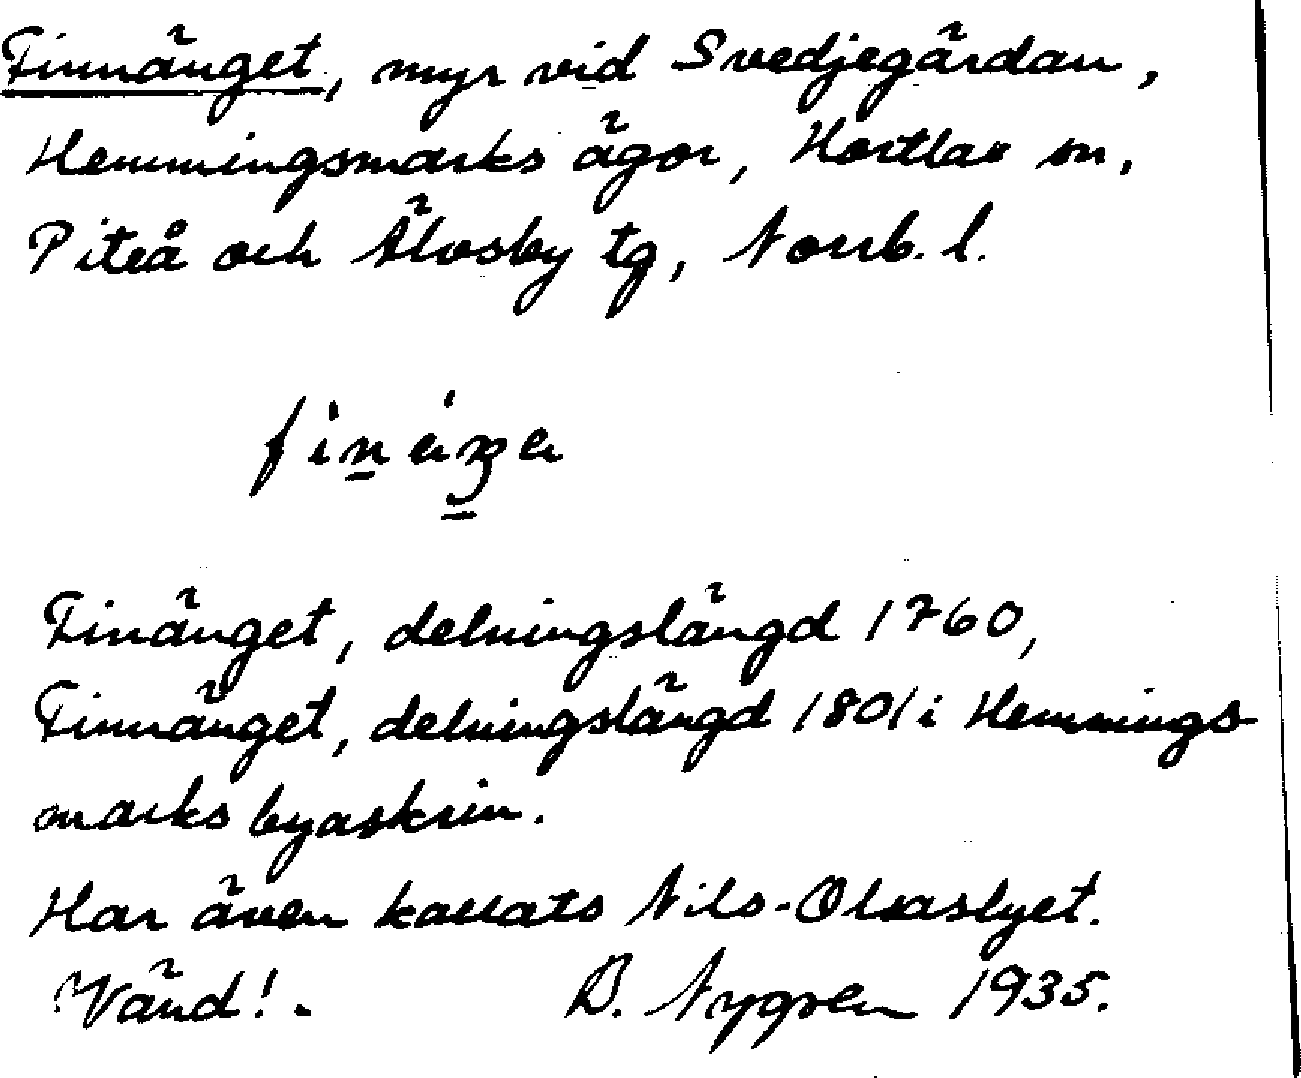 Finnänget, myr vid Svedjegärdan,
Hemmingsmarks ägor, Hortlax sn,
Piteå och Älvsby tg, Norrb. l.
Finänget, delningslängd 1760,
Finnänget, delningslängd 1801 i Hemmings
marks byaskrin.
Har även kallats Nils-Olsaslyet.
Vänd!. B. Nygren 1935.